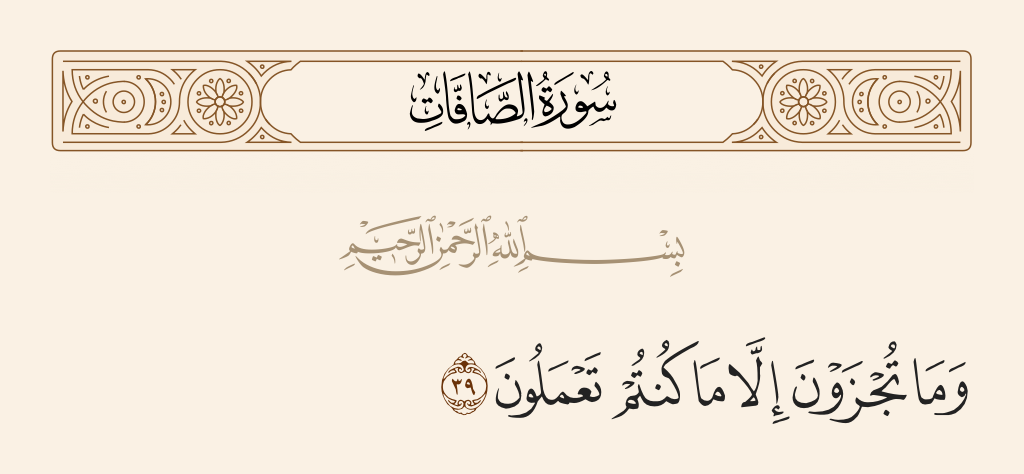 سُورَةُ الصَّافَّاتِ
بِسْمِ ٱللَّهِ ٱلرَّحْمَٰنِ ٱلرَّحِيمِ
وَمَا تُجْزَوْنَ إِلَّا مَا كُنتُمْ تَعْمَلُونَ ٣٩